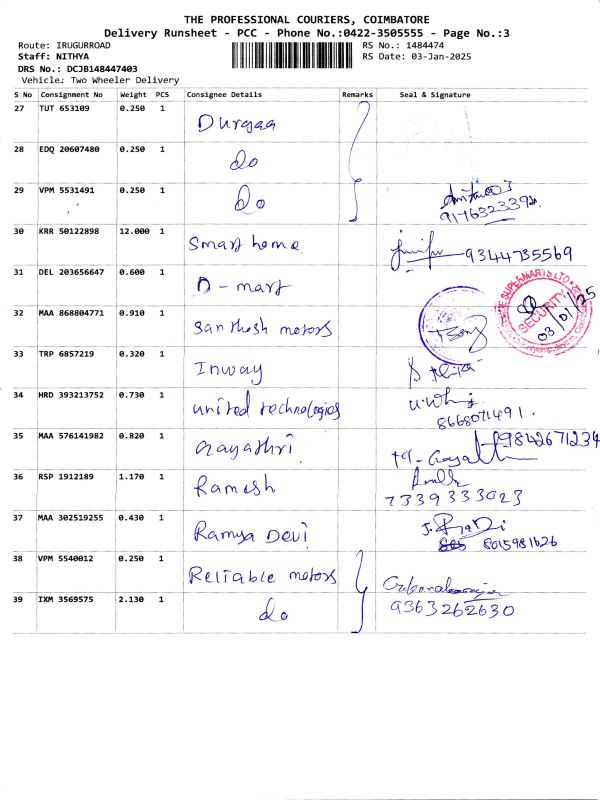 THE PROFESSIONAL COURIERS, COIMBATORE
Delivery Runsheet - PCC - Phone No.:0422-3505555 - Page No.:3
Route: IRUGURROAD RS No.: 1484474
Staff: NITHYA RS Date: 03-Jan-2025
DRS No.: DCJB148447403
Vehicle: Two Wheeler Delivery
S No Consignment No Weight PCS Consignee Details Remarks Seal & Signature
27 TUT 653109 0.250 1 Durgaa
28 EDQ 20607480 0.250 1 do
29 VPM 5531491 0.250 1 do
30 KRR 50122898 12.000 1 Smart home 9344735569
31 DEL 203656647 0.600 1 D-mart
SECURITY 03/01/25
32 MAA 868804771 0.910 1 Santhosh motors
33 TRP 6857219 0.320 1 Inway
34 HRD 393213752 0.730 1 united technologies
8668071491.
35 MAA 576141982 0.820 1 Gayathri 9842671234
36 RSP 1912189 1.170 1 Ramesh
7339333023
37 MAA 302519255 0.430 1 Ramya Devi
8015981626
38 VPM 5540012 0.250 1 Reliable motors
39 IXM 3569575 2.130 1 do 9363262630